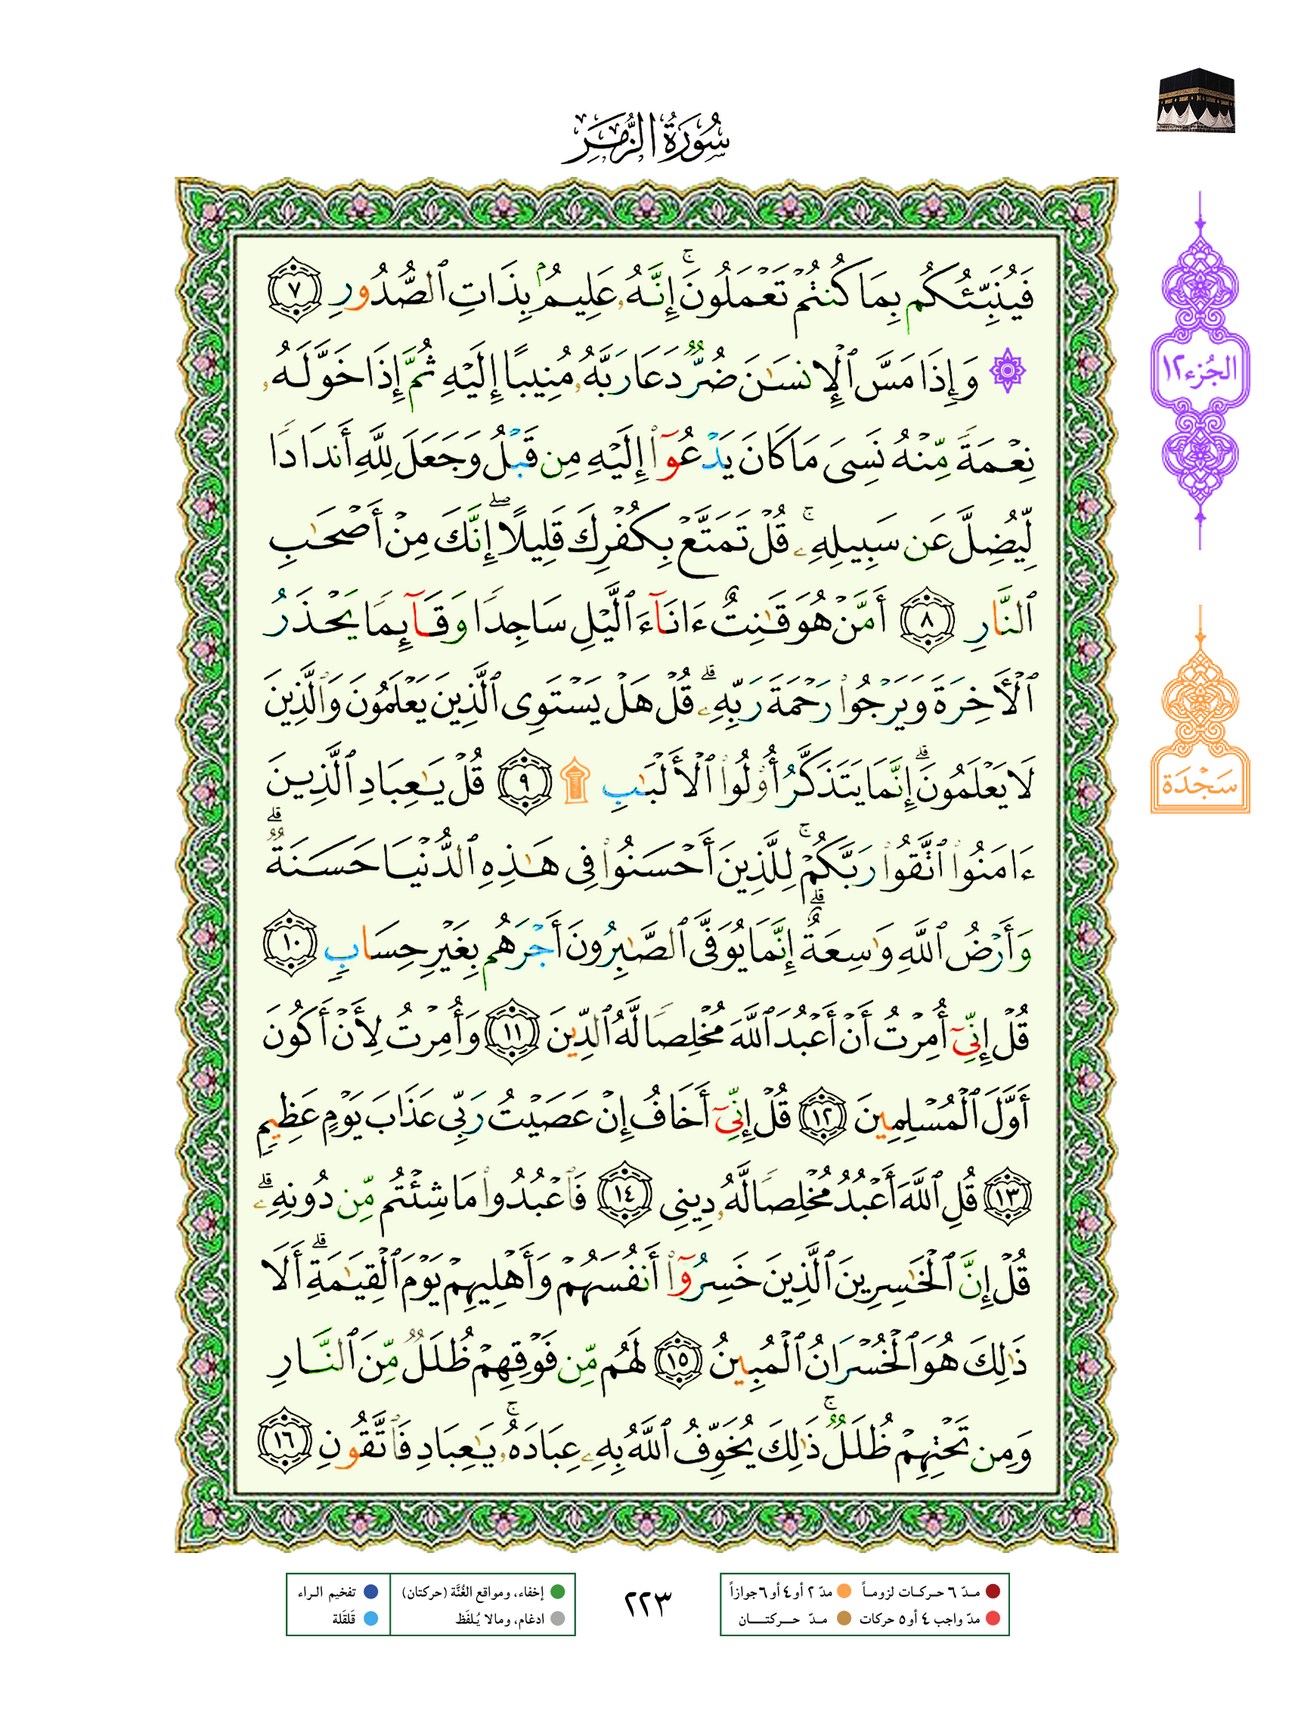 سُورَةُ الزُّمَرِ
فَيُنَبِّئُكُم بِمَا كُنتُمْ تَعْمَلُونَ ۚ إِنَّهُۥ عَلِيمٌۢ بِذَاتِ ٱلصُّدُورِ ٧
۞ وَإِذَا مَسَّ ٱلْإِنسَٰنَ ضُرٌّ دَعَا رَبَّهُۥ مُنِيبًا إِلَيْهِ ثُمَّ إِذَا خَوَّلَهُۥ
نِعْمَةً مِّنْهُ نَسِىَ مَا كَانَ يَدْعُوٓا۟ إِلَيْهِ مِن قَبْلُ وَجَعَلَ لِلَّهِ أَندَادًا
لِّيُضِلَّ عَن سَبِيلِهِۦ ۚ قُلْ تَمَتَّعْ بِكُفْرِكَ قَلِيلًا ۖ إِنَّكَ مِنْ أَصْحَٰبِ
ٱلنَّارِ ٨ أَمَّنْ هُوَ قَٰنِتٌ ءَانَآءَ ٱلَّيْلِ سَاجِدًا وَقَآئِمًا يَحْذَرُ
ٱلْءَاخِرَةَ وَيَرْجُوا۟ رَحْمَةَ رَبِّهِۦ ۗ قُلْ هَلْ يَسْتَوِى ٱلَّذِينَ يَعْلَمُونَ وَٱلَّذِينَ
لَا يَعْلَمُونَ ۗ إِنَّمَا يَتَذَكَّرُ أُو۟لُوا۟ ٱلْأَلْبَٰبِ ۩ ٩ قُلْ يَٰعِبَادِ ٱلَّذِينَ
ءَامَنُوا۟ ٱتَّقُوا۟ رَبَّكُمْ ۚ لِلَّذِينَ أَحْسَنُوا۟ فِى هَٰذِهِ ٱلدُّنْيَا حَسَنَةٌ ۗ
وَأَرْضُ ٱللَّهِ وَٰسِعَةٌ ۗ إِنَّمَا يُوَفَّى ٱلصَّٰبِرُونَ أَجْرَهُم بِغَيْرِ حِسَابٍ ١٠
قُلْ إِنِّىٓ أُمِرْتُ أَنْ أَعْبُدَ ٱللَّهَ مُخْلِصًا لَّهُ ٱلدِّينَ ١١ وَأُمِرْتُ لِأَنْ أَكُونَ
أَوَّلَ ٱلْمُسْلِمِينَ ١٢ قُلْ إِنِّىٓ أَخَافُ إِنْ عَصَيْتُ رَبِّى عَذَابَ يَوْمٍ عَظِيمٍ
١٣ قُلِ ٱللَّهَ أَعْبُدُ مُخْلِصًا لَّهُۥ دِينِى ١٤ فَٱعْبُدُوا۟ مَا شِئْتُم مِّن دُونِهِۦ ۗ
قُلْ إِنَّ ٱلْخَٰسِرِينَ ٱلَّذِينَ خَسِرُوٓا۟ أَنفُسَهُمْ وَأَهْلِيهِمْ يَوْمَ ٱلْقِيَٰمَةِ ۗ أَلَا
ذَٰلِكَ هُوَ ٱلْخُسْرَانُ ٱلْمُبِينُ ١٥ لَهُم مِّن فَوْقِهِمْ ظُلَلٌ مِّنَ ٱلنَّارِ
وَمِن تَحْتِهِمْ ظُلَلٌ ۚ ذَٰلِكَ يُخَوِّفُ ٱللَّهُ بِهِۦ عِبَادَهُۥ ۚ يَٰعِبَادِ فَٱتَّقُونِ ١٦
الجُزء ١٢
سَجْدَة
مـدّ ٦ حـركـات لزومـاً مدّ ٢ أو ٤ أو ٦ جوازاً
مدّ واجب ٤ أو ٥ حركات مـدّ حـــركتـــــان
٢٢٣
إخفاء، ومواقع الغُنَّة (حركتان) تفخيم الـراء
ادغام، ومالا يُـلفَظ قَلقَلة